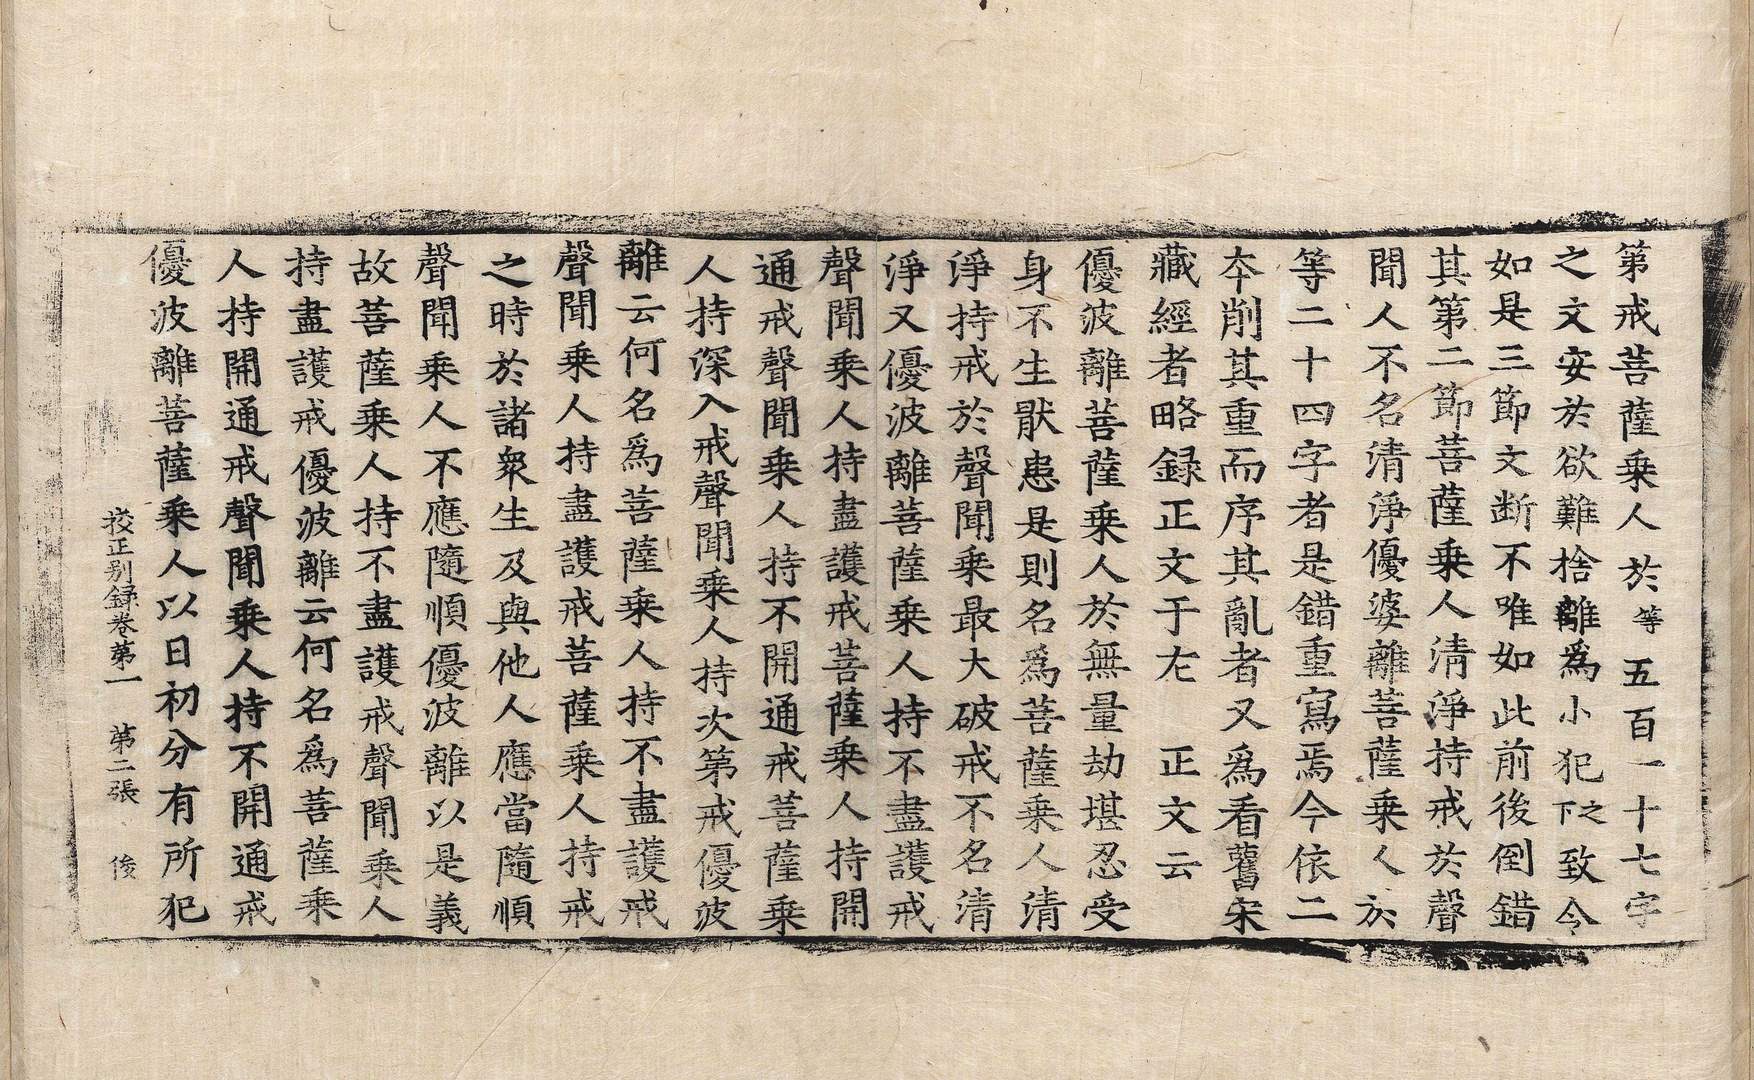 第戒菩薩乗人於等五百一十七字
之文安於欲難捨離爲小犯之下致今
如是三節文断不唯如此前後倒錯
其第二節菩薩乗人清淨持戒於聲
聞人不名清淨優婆離菩薩乗人於
等二十四字者是錯重寫焉今依二
夲削其重而序其亂者又爲看舊宋
藏經者略録正文于左　正文云
優波離菩薩乗人於無量劫堪忍受
身不生猒患是則名爲菩薩乗人清
淨持戒於聲聞乗最大破戒不名清
淨又優波離菩薩乗人持不盡護戒
聲聞乗人持盡護戒菩薩乗人持開
通戒聲聞乗人持不開通戒菩薩乗
人持深入戒聲聞乗人持次第戒優波
離云何名爲菩薩乗人持不盡護戒
聲聞乗人持盡護戒菩薩乗人持戒
之時於諸衆生及與他人應當隨順
聲聞乗人不應隨順優波離以是義
故菩薩乗人持不盡護戒聲聞乗人
持盡護戒優波離云何名爲菩薩乗
人持開通戒聲聞乗人持不開通戒
優波離菩薩乗人以日初分有所犯
挍正別録卷第一　第二張　俊